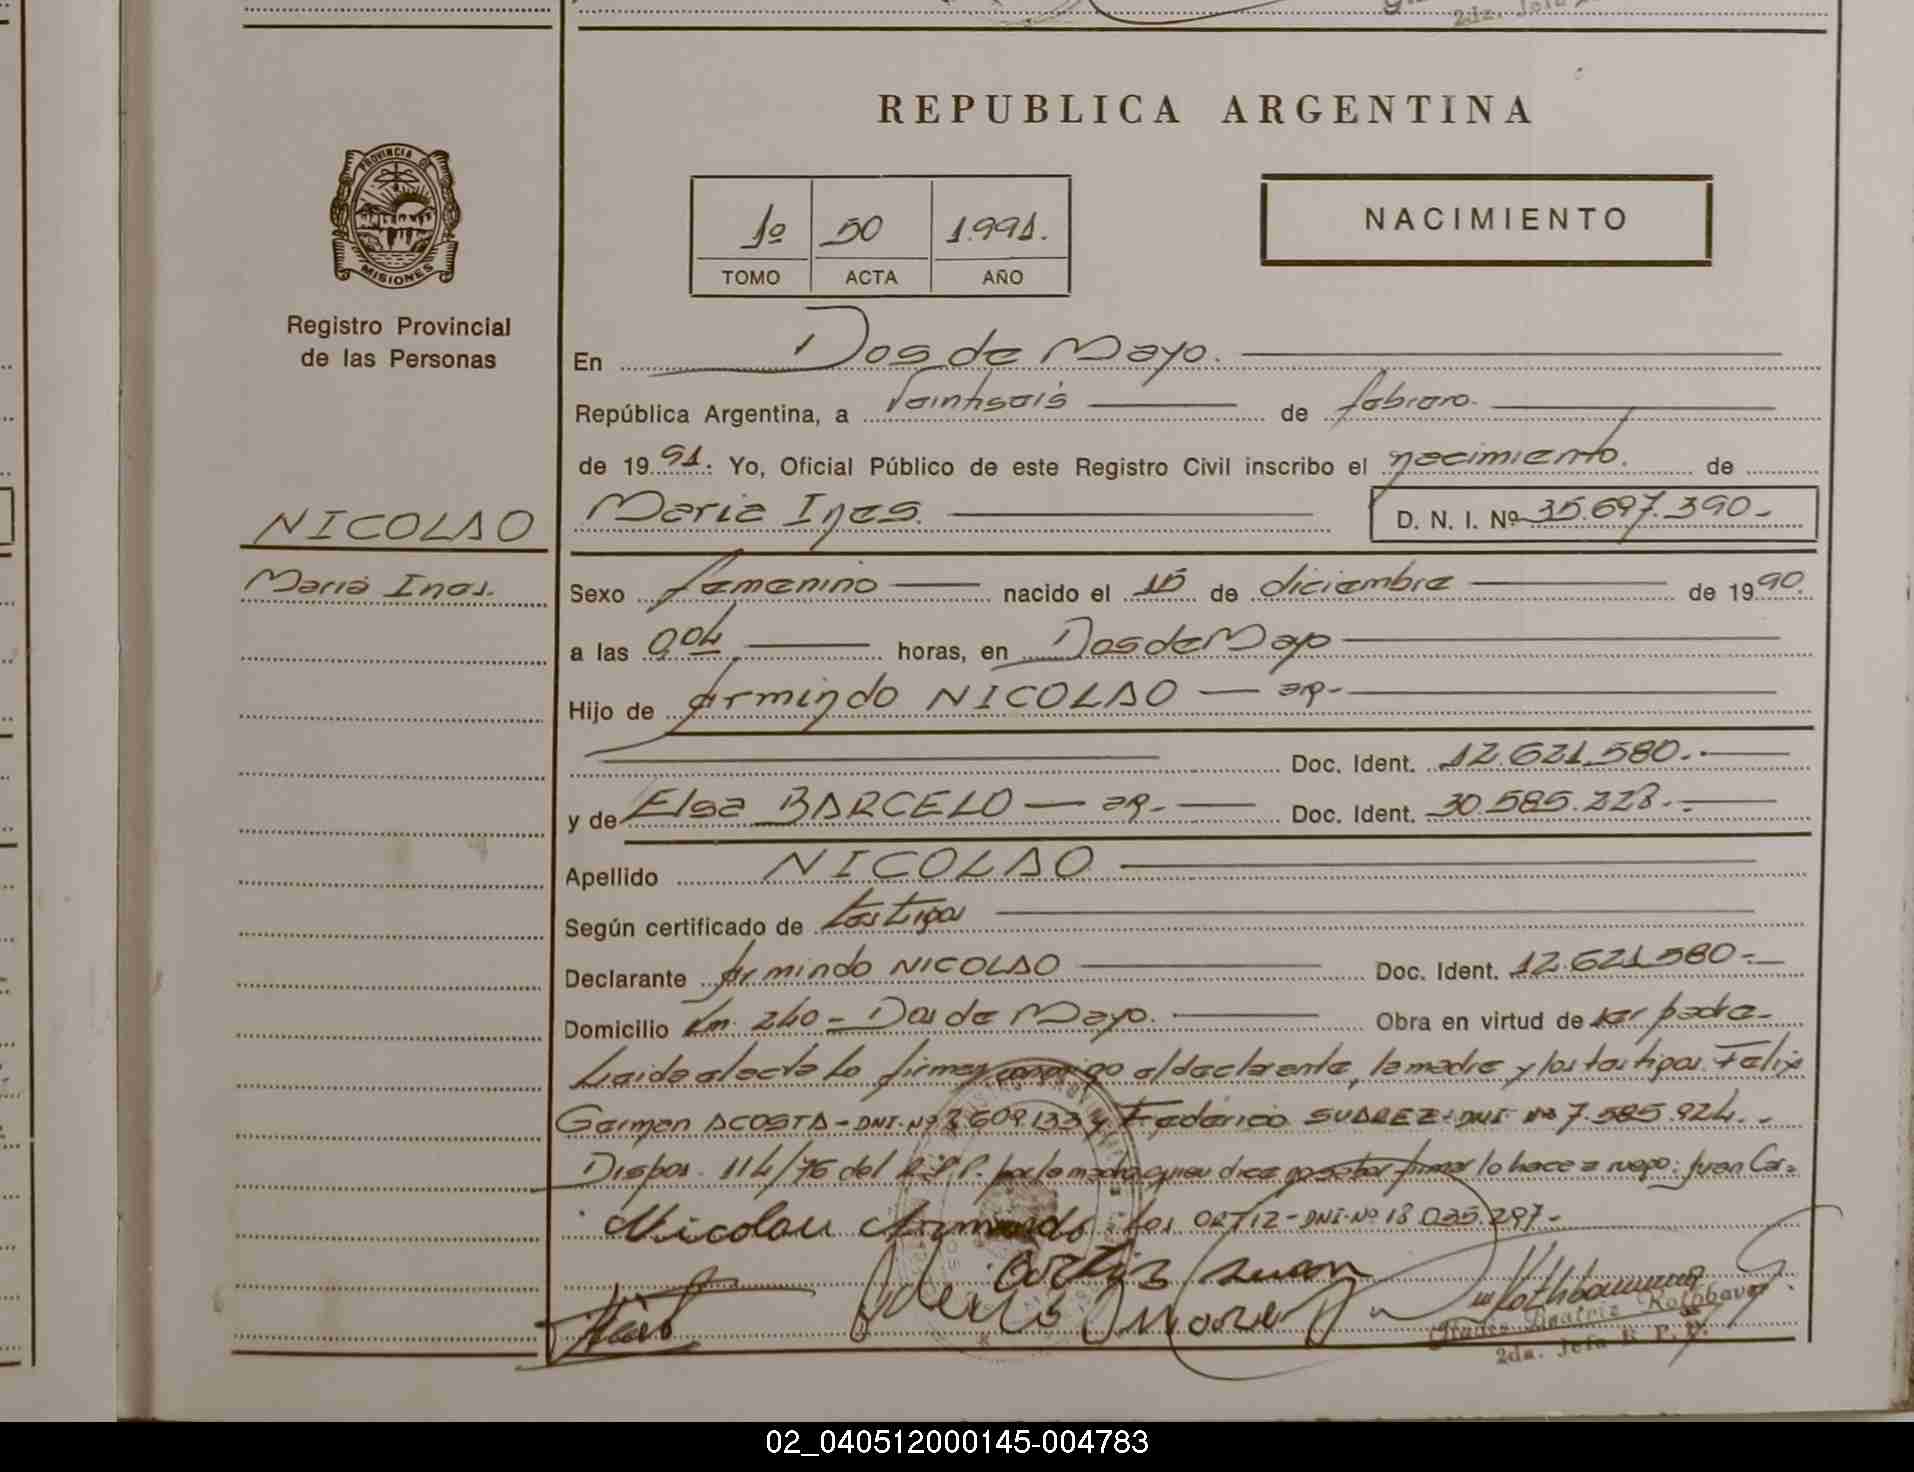 2da. Jefa
REPUBLICA ARGENTINA
PROVINCIA DE
MISIONES
Registro Provincial
de las Personas
1º 50 1.991.
TOMO ACTA AÑO
NACIMIENTO
En Dos de Mayo.
República Argentina, a Veintiseis de febrero.
de 1991. Yo, Oficial Público de este Registro Civil inscribo el nacimiento. de
NICOLAO
Maria Ines. D. N. I. Nº 35.697.390-
Maria Ines.
Sexo femenino nacido el 15 de diciembre de 1990.
a las 9,04 horas, en Dos de Mayo
Hijo de Armindo NICOLAO — ar-
Doc. Ident. 12.621.580.-
y de Elsa BARCELO — ar.- Doc. Ident. 30.585.228.-
Apellido NICOLAO
Según certificado de testigos
Declarante Armindo NICOLAO Doc. Ident. 12.621.580-
Domicilio Km 240 - Dos de Mayo. Obra en virtud de ser padre-
Leida el acta la firman conmigo el declarante, la madre y los testigos Felix
German ACOSTA - DNI-Nº 3.609.133 y Federico SUAREZ - DNI Nº 7.585.924.-
Dispos. 114/76 del R.P.P. por la madre quien dice no saber firmar lo hace a ruego: Juan Car-
los ORTIZ - DNI-Nº 18.035.297-
Nicolau Armindo
Ortiz Juan
Gladis Beatriz Rothbaver
2da. Jefa R. P. P.
02_040512000145-004783